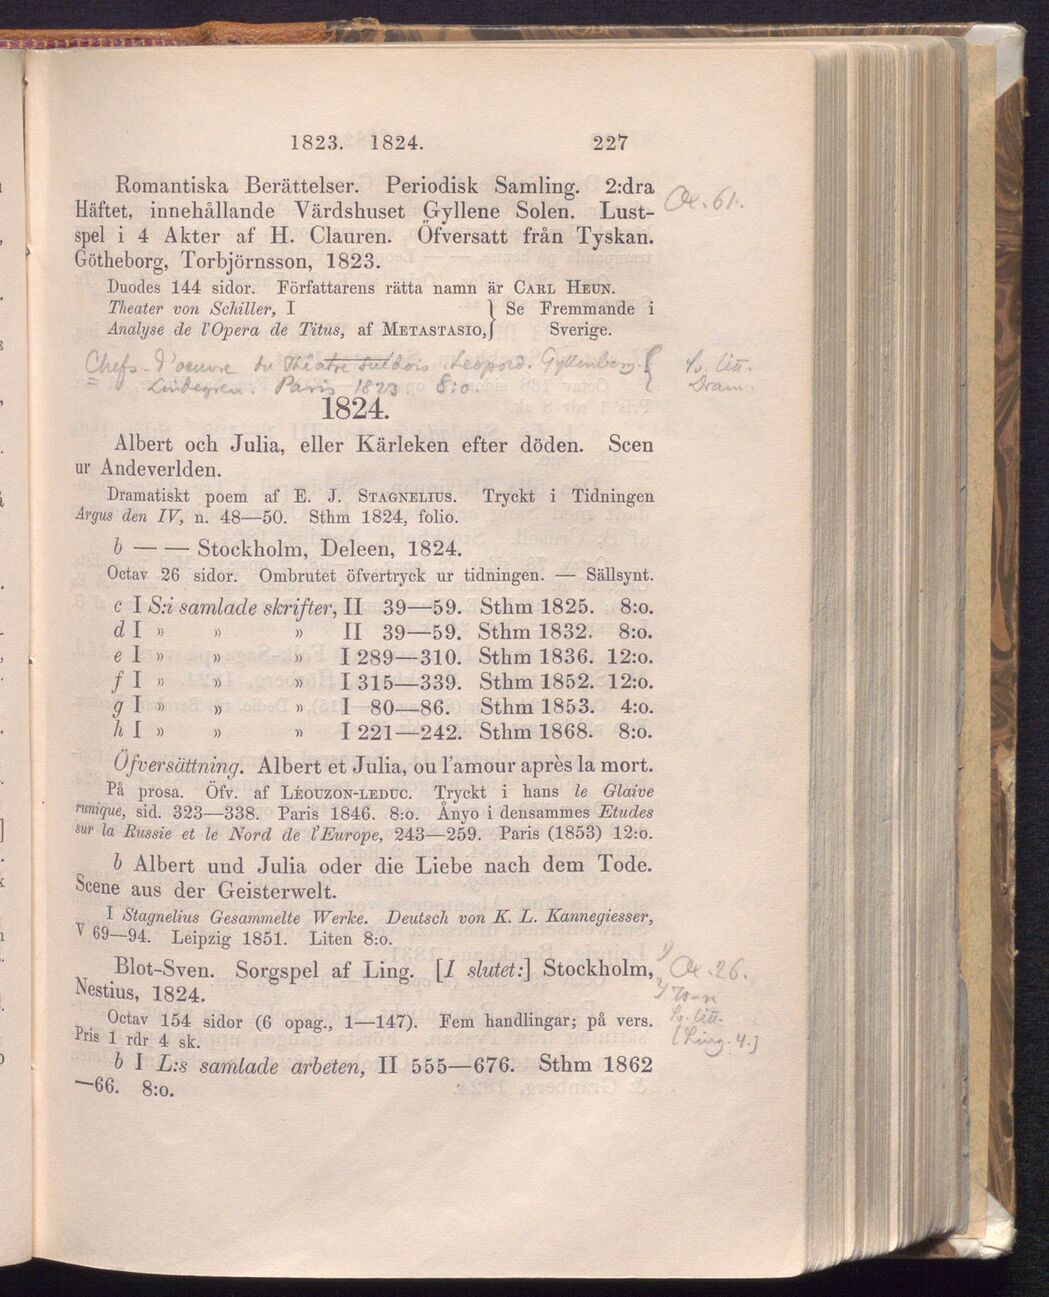 1823. 1824. 227
Romantiska Berättelser. Periodisk Samling. 2:dra
Häftet, innehållande Värdshuset Gyllene Solen. Lust-
spel i 4 Akter af H. Clauren. Öfversatt från Tyskan.
Götheborg, Torbjörnsson, 1823.
Œ. 61.
Duodes 144 sidor. Författarens rätta namn är CARL HEUN.
Theater von Schiller, I } Se Fremmande i
Analyse de l'Opera de Titus, af METASTASIO, } Sverige.
Chefs-d'oeuvre du Théatre Suédois. Leopold. Gyllenborg {
Lindegren. Paris 1823. 8:o.
Sv. Litt.
Dram.
1824.
Albert och Julia, eller Kärleken efter döden. Scen
ur Andeverlden.
Dramatiskt poem af E. J. STAGNELIUS. Tryckt i Tidningen
Argus den IV, n. 48—50. Sthm 1824, folio.
b — — Stockholm, Deleen, 1824.
Octav 26 sidor. Ombrutet öfvertryck ur tidningen. — Sällsynt.
c I S:i samlade skrifter, II 39—59. Sthm 1825. 8:o.
d I » » » II 39—59. Sthm 1832. 8:o.
e I » » » I 289—310. Sthm 1836. 12:o.
f I » » » I 315—339. Sthm 1852. 12:o.
g I » » » I 80—86. Sthm 1853. 4:o.
h I » » » I 221—242. Sthm 1868. 8:o.
Öfversättning. Albert et Julia, ou l'amour après la mort.
På prosa. Öfv. af LÉOUZON-LEDUC. Tryckt i hans le Glaive
runique, sid. 323—338. Paris 1846. 8:o. Ånyo i densammes Etudes
sur la Russie et le Nord de l'Europe, 243—259. Paris (1853) 12:o.
b Albert und Julia oder die Liebe nach dem Tode.
Scene aus der Geisterwelt.
I Stagnelius Gesammelte Werke. Deutsch von K. L. Kannegiesser,
V 69—94. Leipzig 1851. Liten 8:o.
Blot-Sven. Sorgspel af Ling. [I slutet:] Stockholm,
Nestius, 1824.
Œ. 26.
Sv. Litt.
[Ling. 4.]
Octav 154 sidor (6 opag., 1—147). Fem handlingar; på vers.
Pris 1 rdr 4 sk.
b I L:s samlade arbeten, II 555—676. Sthm 1862
—66. 8:o.